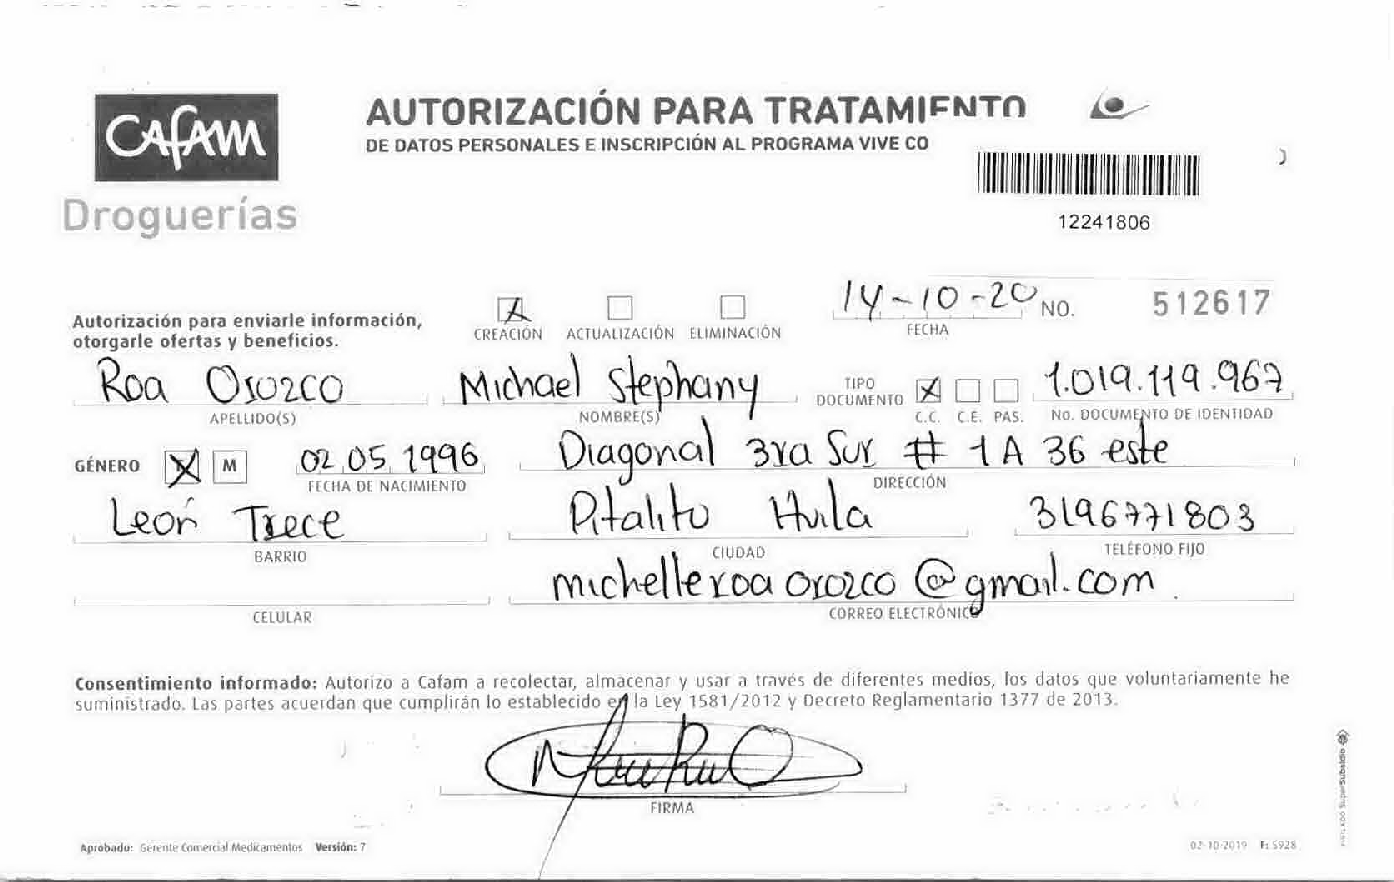 CAFAM
Droguerías
AUTORIZACIÓN PARA TRATAMIENTO
DE DATOS PERSONALES E INSCRIPCIÓN AL PROGRAMA VIVE CO
12241806
Autorización para enviarle información,
otorgarle ofertas y beneficios.
X CREACIÓN ACTUALIZACIÓN ELIMINACIÓN
14-10-20 NO. 512617
FECHA
Roa Orozco Michael Stephany TIPO DOCUMENTO X 1.019.119.967
APELLIDO(S) NOMBRE(S) C.C. C.E. PAS. No. DOCUMENTO DE IDENTIDAD
GÉNERO X M 02.05.1996 Diagonal 3ra Sur # 1A 36 este
FECHA DE NACIMIENTO DIRECCIÓN
León Trece Pitalito Huila 3196771803
BARRIO CIUDAD TELÉFONO FIJO
michelleroaorozco@gmail.com
CELULAR CORREO ELECTRÓNICO
Consentimiento informado: Autorizo a Cafam a recolectar, almacenar y usar a través de diferentes medios, los datos que voluntariamente he
suministrado. Las partes acuerdan que cumplirán lo establecido en la Ley 1581/2012 y Decreto Reglamentario 1377 de 2013.
FIRMA
Aprobado: Gerente Comercial Medicamentos Versión: 7
02-10-2019 F: 5928
VIGILADO SuperSubsidio